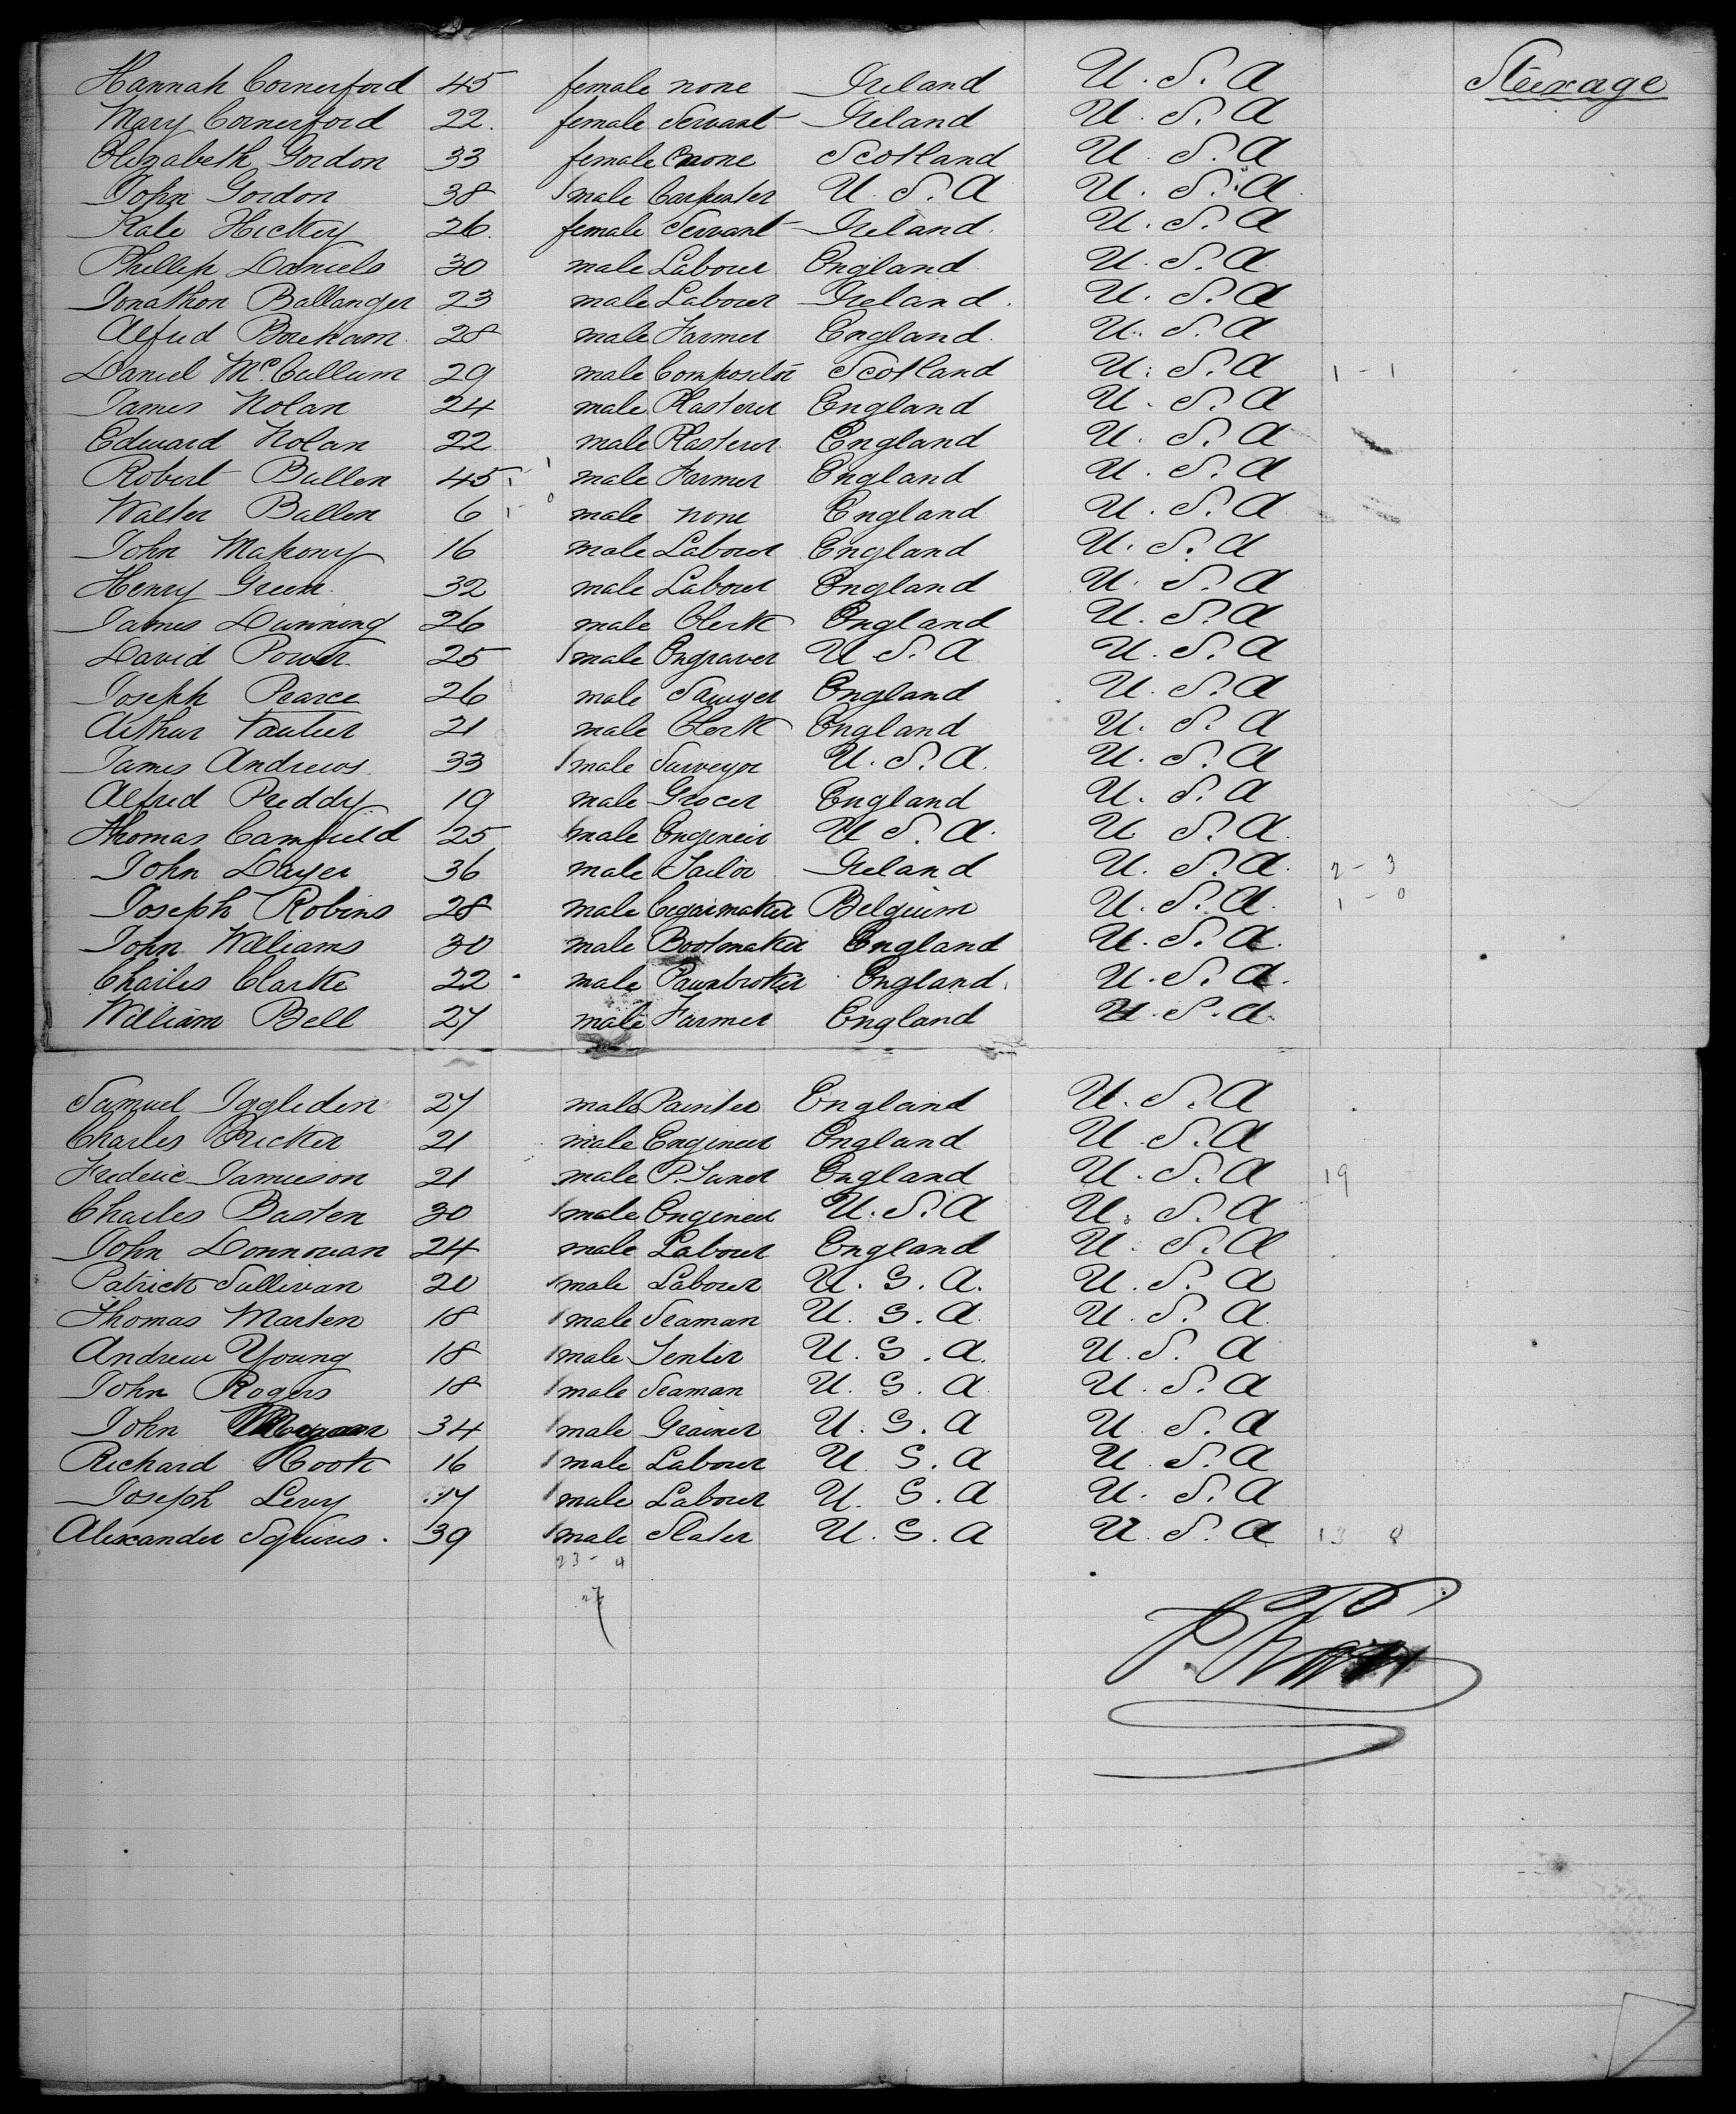 Steerage
Hannah Cornerford 45 female none Ireland U.S.A
Mary Cornerford 22 female Servant Ireland U.S.A
Elizabeth Gordon 33 female none Scotland U.S.A
John Gordon 38 male Carpenter U.S.A U.S.A
Kate Hickey 26 female Servant Ireland U.S.A
Phillip Daniels 30 male Labour England U.S.A
Jonathon Ballanger 23 male Labour Ireland U.S.A
Alfred Boreham 28 male Farmer England U.S.A
Daniel McCullum 29 male Compositor Scotland U.S.A 1 - 1
James Nolan 24 male Plasterer England U.S.A
Edward Nolan 22 male Plasterer England U.S.A
Robert Bullen 45 male Farmer England U.S.A
Walter Bullen 6 male none England U.S.A
John Mahony 16 male Labour England U.S.A
Henry Green 32 male Labour England U.S.A
James Dunning 26 male Clerk England U.S.A
David Power 25 male Engraver U.S.A U.S.A
Joseph Pearce 26 male Sawyer England U.S.A
Arthur 21 male Clerk England U.S.A
James Andrews 33 male Surveyor U.S.A. U.S.A
Alfred Preddy 19 male Grocer England U.S.A
Thomas Camfield 25 male Engineir U.S.A. U.S.A.
John Dayer 36 male Tailor Ireland U.S.A. 2 - 3
Joseph Robins 28 male Cegarmaker Belgium U.S.A. 1 - 0
John Williams 30 male Bootmaker England U.S.A.
Charles Clarke 22 male Pawnbroker England U.S.A.
William Bell 27 male Farmer England U.S.A.
Samuel Iggleden 27 male Painter England U.S.A
Charles Pricker 21 male Engineer England U.S.A
Frederic Jamieson 21 male P.Tuner England U.S.A 19
Charles Basten 30 male Engineer U.S.A U.S.A
John Donnovan 24 male Labour England U.S.A
Patrick Sullivan 20 male Labour U.S.A. U.S.A
Thomas Marten 18 male Seaman U.S.A. U.S.A.
Andrew Young 18 male U.S.A. U.S.A
John Rogers 18 male Seaman U.S.A. U.S.A
John 34 male Grainer U.S.A U.S.A
Richard Cook 16 male Labour U.S.A U.S.A
Joseph Levy 17 male Labour U.S.A U.S.A
Alexander Squires 39 male Slater U.S.A U.S.A 13 8
23 - 4
27